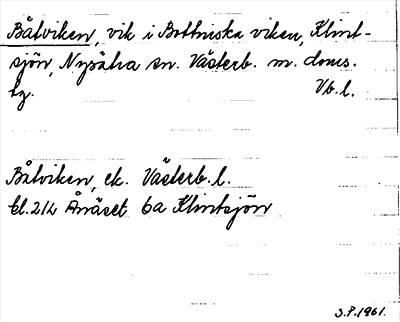 Båtviken, vik i Bottniska viken, Klint-
sjön, Nysätra sn. Västerb. m. doms.
tg. Vb.l.
Båtviken, ek. Västerb.l.
bl. 212 Ånäset 6a Klintsjön
S.F. 1961.